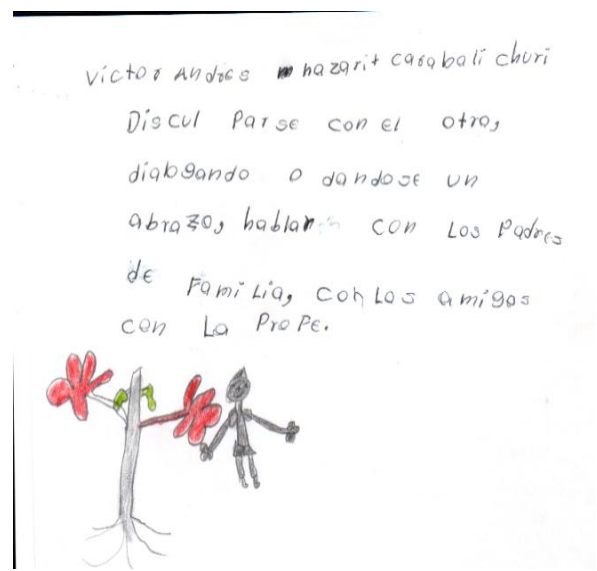 Victor Andres nhazarit carabali churi
Discul Parse con el otro,
dialogando o dandose un
abrazo, hablar con Los Padres
de Familia, con Los amigos
con La Profe.